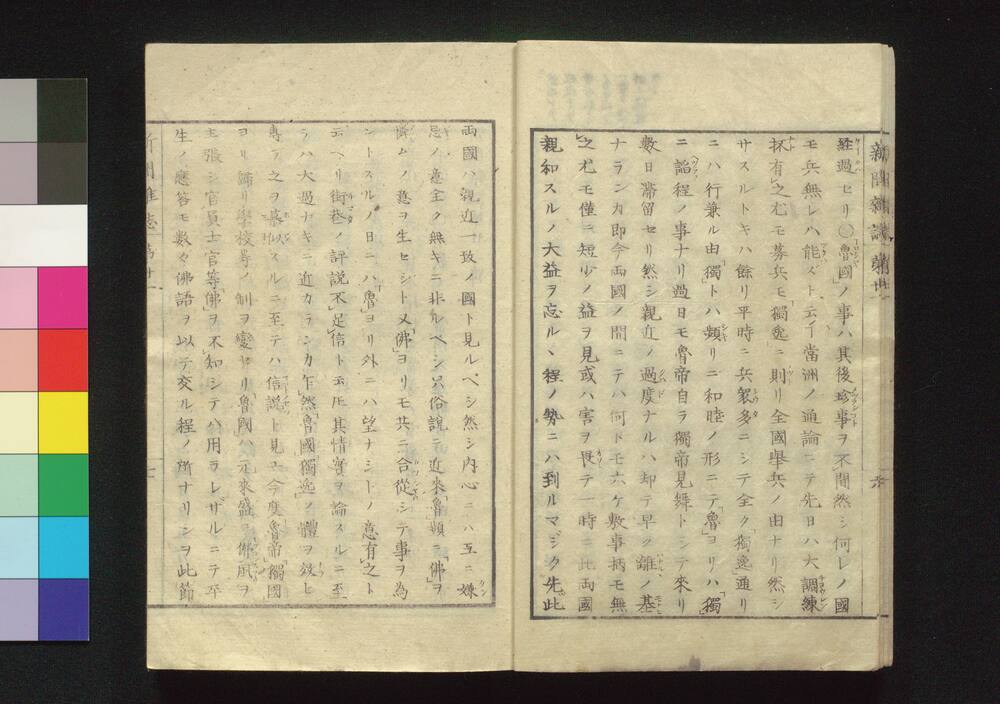 新聞雑誌 第廿
経過セリ○「魯國」ノ事ハ其後珍事ヲ不聞然シ何レノ國
モ兵無レハ能ズト云イ當洲ノ通論ニテ先日ハ大調練
抔有之尤モ募兵モ「獨逸」ニ則リ全國舉兵ノ由ナリ然シ
サスルトキハ餘リ平時ニ兵衆多ニシテ全ク獨逸通リ
ニハ行兼ル由「獨」トハ頻リニ和睦ノ形ニテ「魯」ヨリハ「獨」
ニ諂程ノ事ナリ過日モ魯帝自ラ獨帝見舞トシテ來リ
數日滞留セリ然シ親近ノ過度ナルハ却テ早ク離ノ基
ナランカ即今両國ノ間ニテハ何トモ六ケ敷事抦モ無
之尤モ僅ニ短少ノ益ヲ見或ハ害ヲ畏テ一時ニ此両國
親和スルノ大益ヲ忘ルヽ程ノ勢ニハ到ルマジク先此
両國ハ親近一致ノ國ト見ルベシ然シ内心ニハ互ニ嫌
忌ノ意全ク無キニ非ルベシ只俗說ニ近來「魯」頻ニ「佛」ヲ
憐ムノ意ヲ生ヒシト又「佛」ヨリモ共ニ合從シテ事ヲ為
ントスルノ日ニハ「魯」ヨリ外ニハ望ナシトノ意有之ト
云ヘリ街巷ノ評說不足信ト云𪜈其情實ヲ論スルニ至
ラハ大過ナキニ近カランカ乍然「魯國」「獨逸」ノ體ヲ效ヒ
專ラ之ヲ慕似スルニ至テハ信說ト見ユ今度「魯帝」獨國
ヨリ歸リ學校等ノ制ヲ變セリ「魯國」ハ元來盛ニ佛風ヲ
主張シ官員士官等「佛」ヲ不知シテハ用ラレザルニテ平
生ノ應答モ數々佛語ヲ以テ交ル程ノ所ナリシヲ此節
新聞雑誌 第廿一